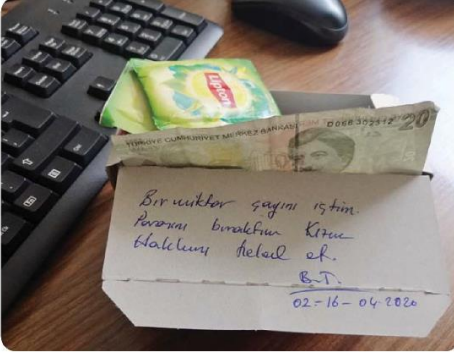 Lipton
TÜRKİYE CUMHURİYET MERKEZ BANKASI
20
Bir miktar çayını içtim.
Parasını bıraktım Kızma
Hakkını helal et.
B.T.
02-16-04.2020